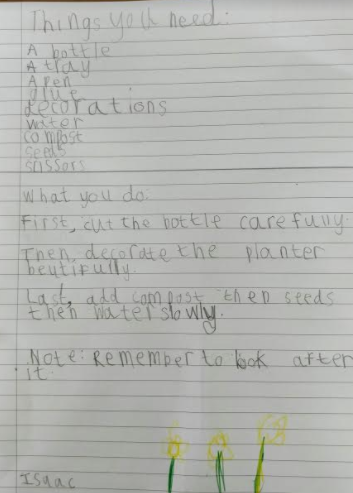 Things you need:
A bottle
A tray
A pen
glue
decorations
water
compost
seeds
sissors
What you do.
First, cut the bottle carefully.
Then, decorate the planter
beutifully.
Last, add compost then seeds
then water slowly.
Note: Remember to look after
it.
Isaac